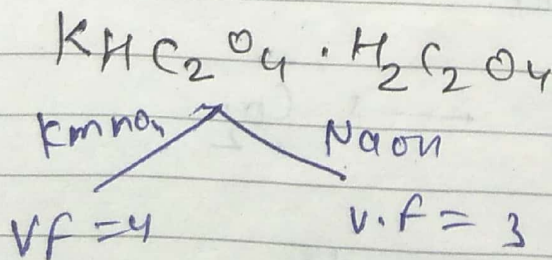 KHC₂O₄ · H₂C₂O₄
KmnO₄ NaOH
Vf = 4 v.f = 3